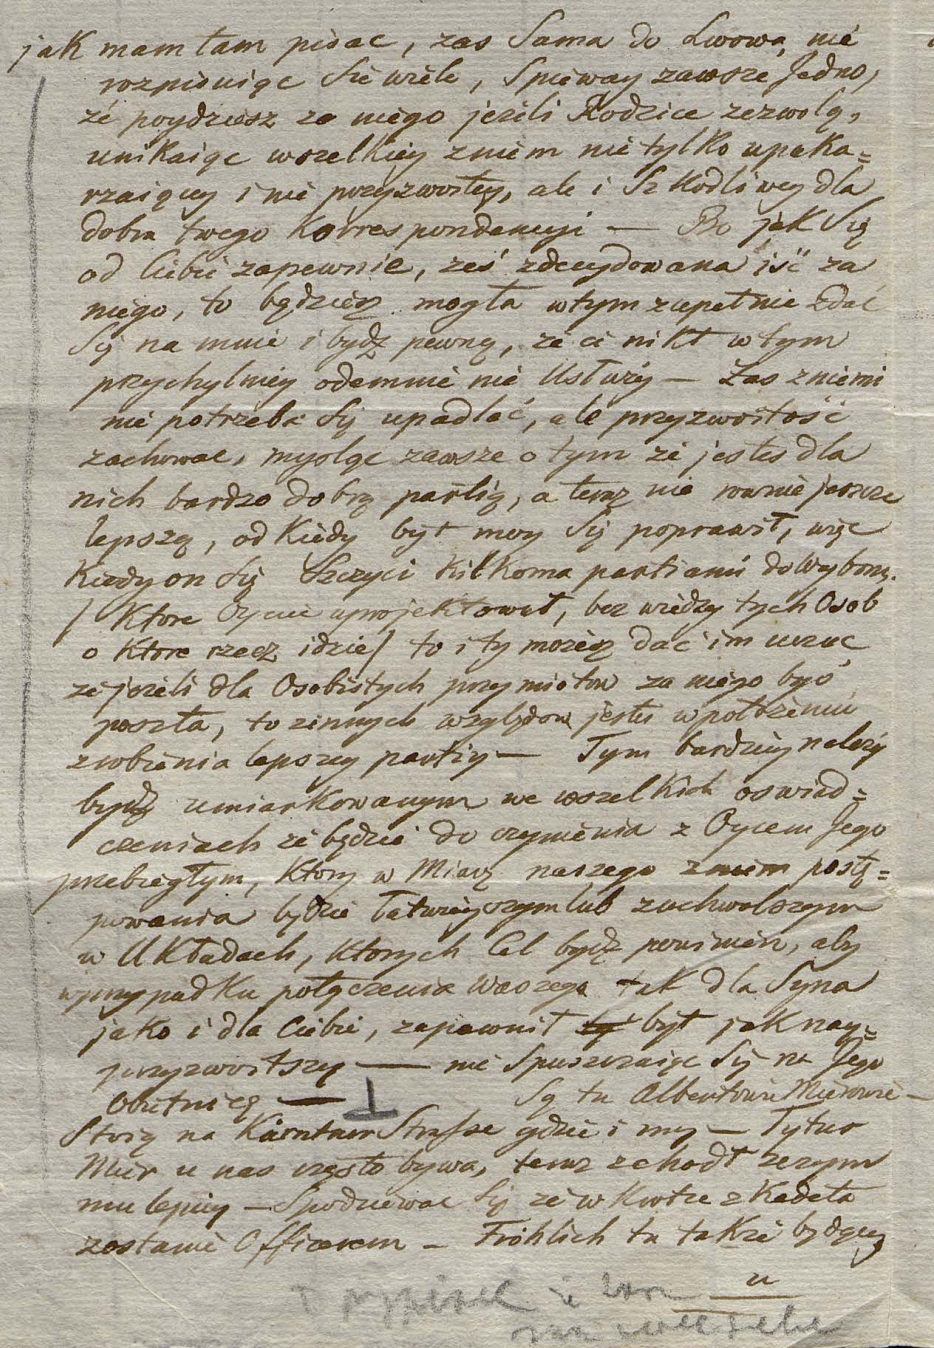 jak mam tam pisac, zas Sama do Lwowa, nie
rozpisuiąc Sie wiele, Spieway zawsze Jedno,
że poydziesz za niego jeżeli Rodzice zezwolą,
unikaiąc wszelkiey z niem nie tylko upoka=
rzaiącey i nie przyzwoitey, ale i Szkodliwey dla
dobra twego Korrespondencyi — Bo jak Się
od Ciebie zapewnie, żeś zdecydowana iść za
niego, to będziesz mogła w tym zupełnie zdać
Się na mnie i bydz pewną, że ci nikt w tym
przychylniey odemnie nie Usłuży — Zas z niemi
nie potrzeba Się upadlać, ale przyzwoitość
zachowac, mysląc zawsze o tym że jestes dla
nich bardzo dobrą partią, a teraz nie rownie jeszcze
lepszą, od Kiedy byt moy Się poprawił, więc
Kiedy on Się Szczyci Kilkoma partiami do Wyboru
/ Ktore Oyciec uprojektował, bez wiedzy tych Osob
o Ktore rzecz idzie/ to i ty możesz dać im uczuc
że jeżeli dla Osobistych przymiotow za niego byś
poszła, to z innych względow jestes w położeniu
zrobienia lepszey partiy — Tym bardziey należy
bydz umiarkowanym we wszelkich oswiad=
czeniach że będzie do czynienia z Oycem Jego
przebiegłym, Ktory w Miarę naszego z niem postę=
powania będzie łatwieyszym lub zuchwalszym
w Układach, Ktorych Cel bydz powinien, aby
w przypadku połączenia Waszego tak dla Syna
jako i dla Ciebie, zapewnił byt jak nay=
przyzwoitszy — nie Spuszczaiąc Się na Jego
Obietnicę — Są tu Albertowie Mierowie —
Stoią na Kärntner Strasse gdzie i my — Tytus
Mier u nas często bywa, teraz zchodł
mu lepiey — Spodziewac Się że w Krotce z Kadeta
zostanie Officerem — Fröhlich tu także będący
u